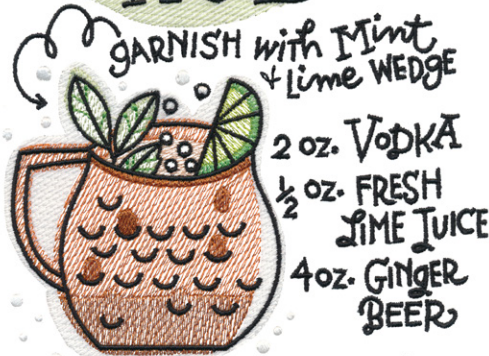 GARNISH with Mint
& Lime WEDGE
2 oz. VODKA
½ oz. FRESH
LIME JUICE
4 oz. GINGER
BEER